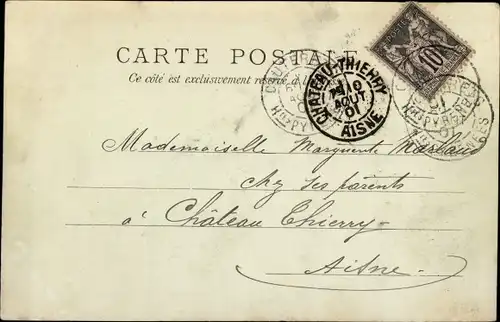 CARTE POSTALE
Ce côté est exclusivement réservé à l'
CHATEAU-THIERRY
10
AOUT
01
AISNE
10
Htes PYRÉNÉES
Mademoiselle Marguerite
chez ses parents
à Château Thierry
Aisne